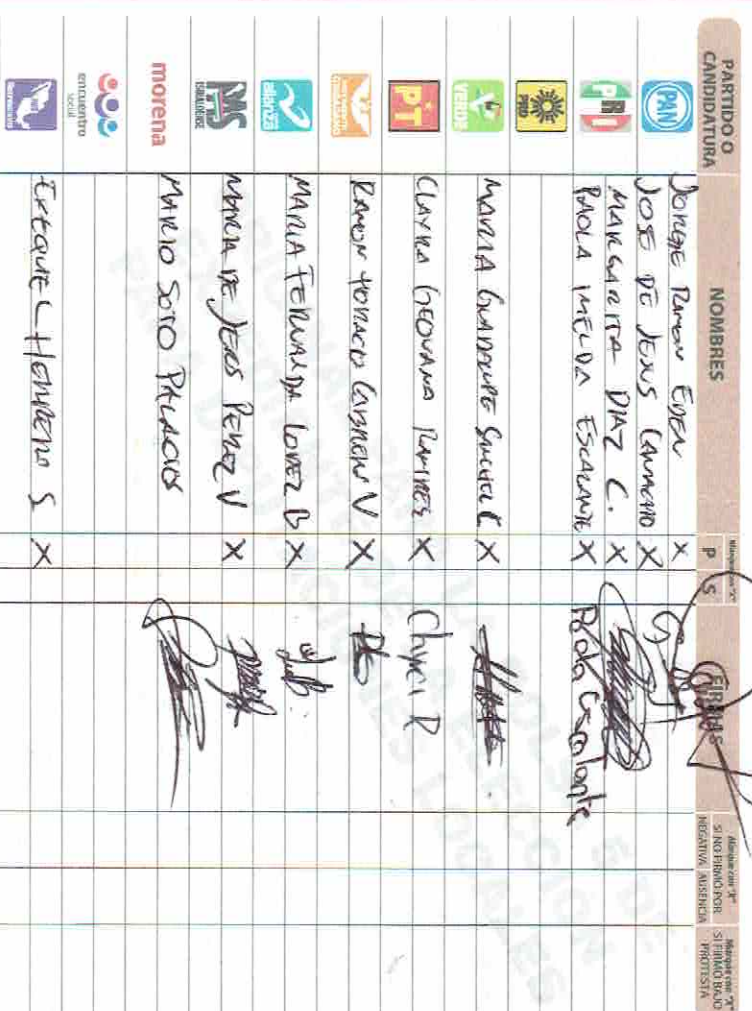 PARTIDO O CANDIDATURA
NOMBRES
Marque con "X"
P
S
FIRMAS
Marque con "X" SI NO FIRMÓ POR
NEGATIVA
AUSENCIA
Marque con "X" SI FIRMÓ BAJO PROTESTA
PAN
JORGE RAMON EDEN X
JOSE DE JESUS CAMACHO X
PRI
MARGARITA DIAZ C. X
PAOLA IMELDA ESCALANTE X Paola Escalante
PRD
VERDE
MARIA GUADALUPE SANCHEZ C X
PT
CLAYRA GEOVANA RAMIRES X Clayra R
MOVIMIENTO CIUDADANO
RAMON HORACIO V X
alianza
MARIA FERNANDA LOPEZ B X
PAS
SINALOENSE
MARIA DE JESUS PEREZ V X
morena
MARIO SOTO PALACIOS
encuentro
social
EXEQUIEL HERRERA S X